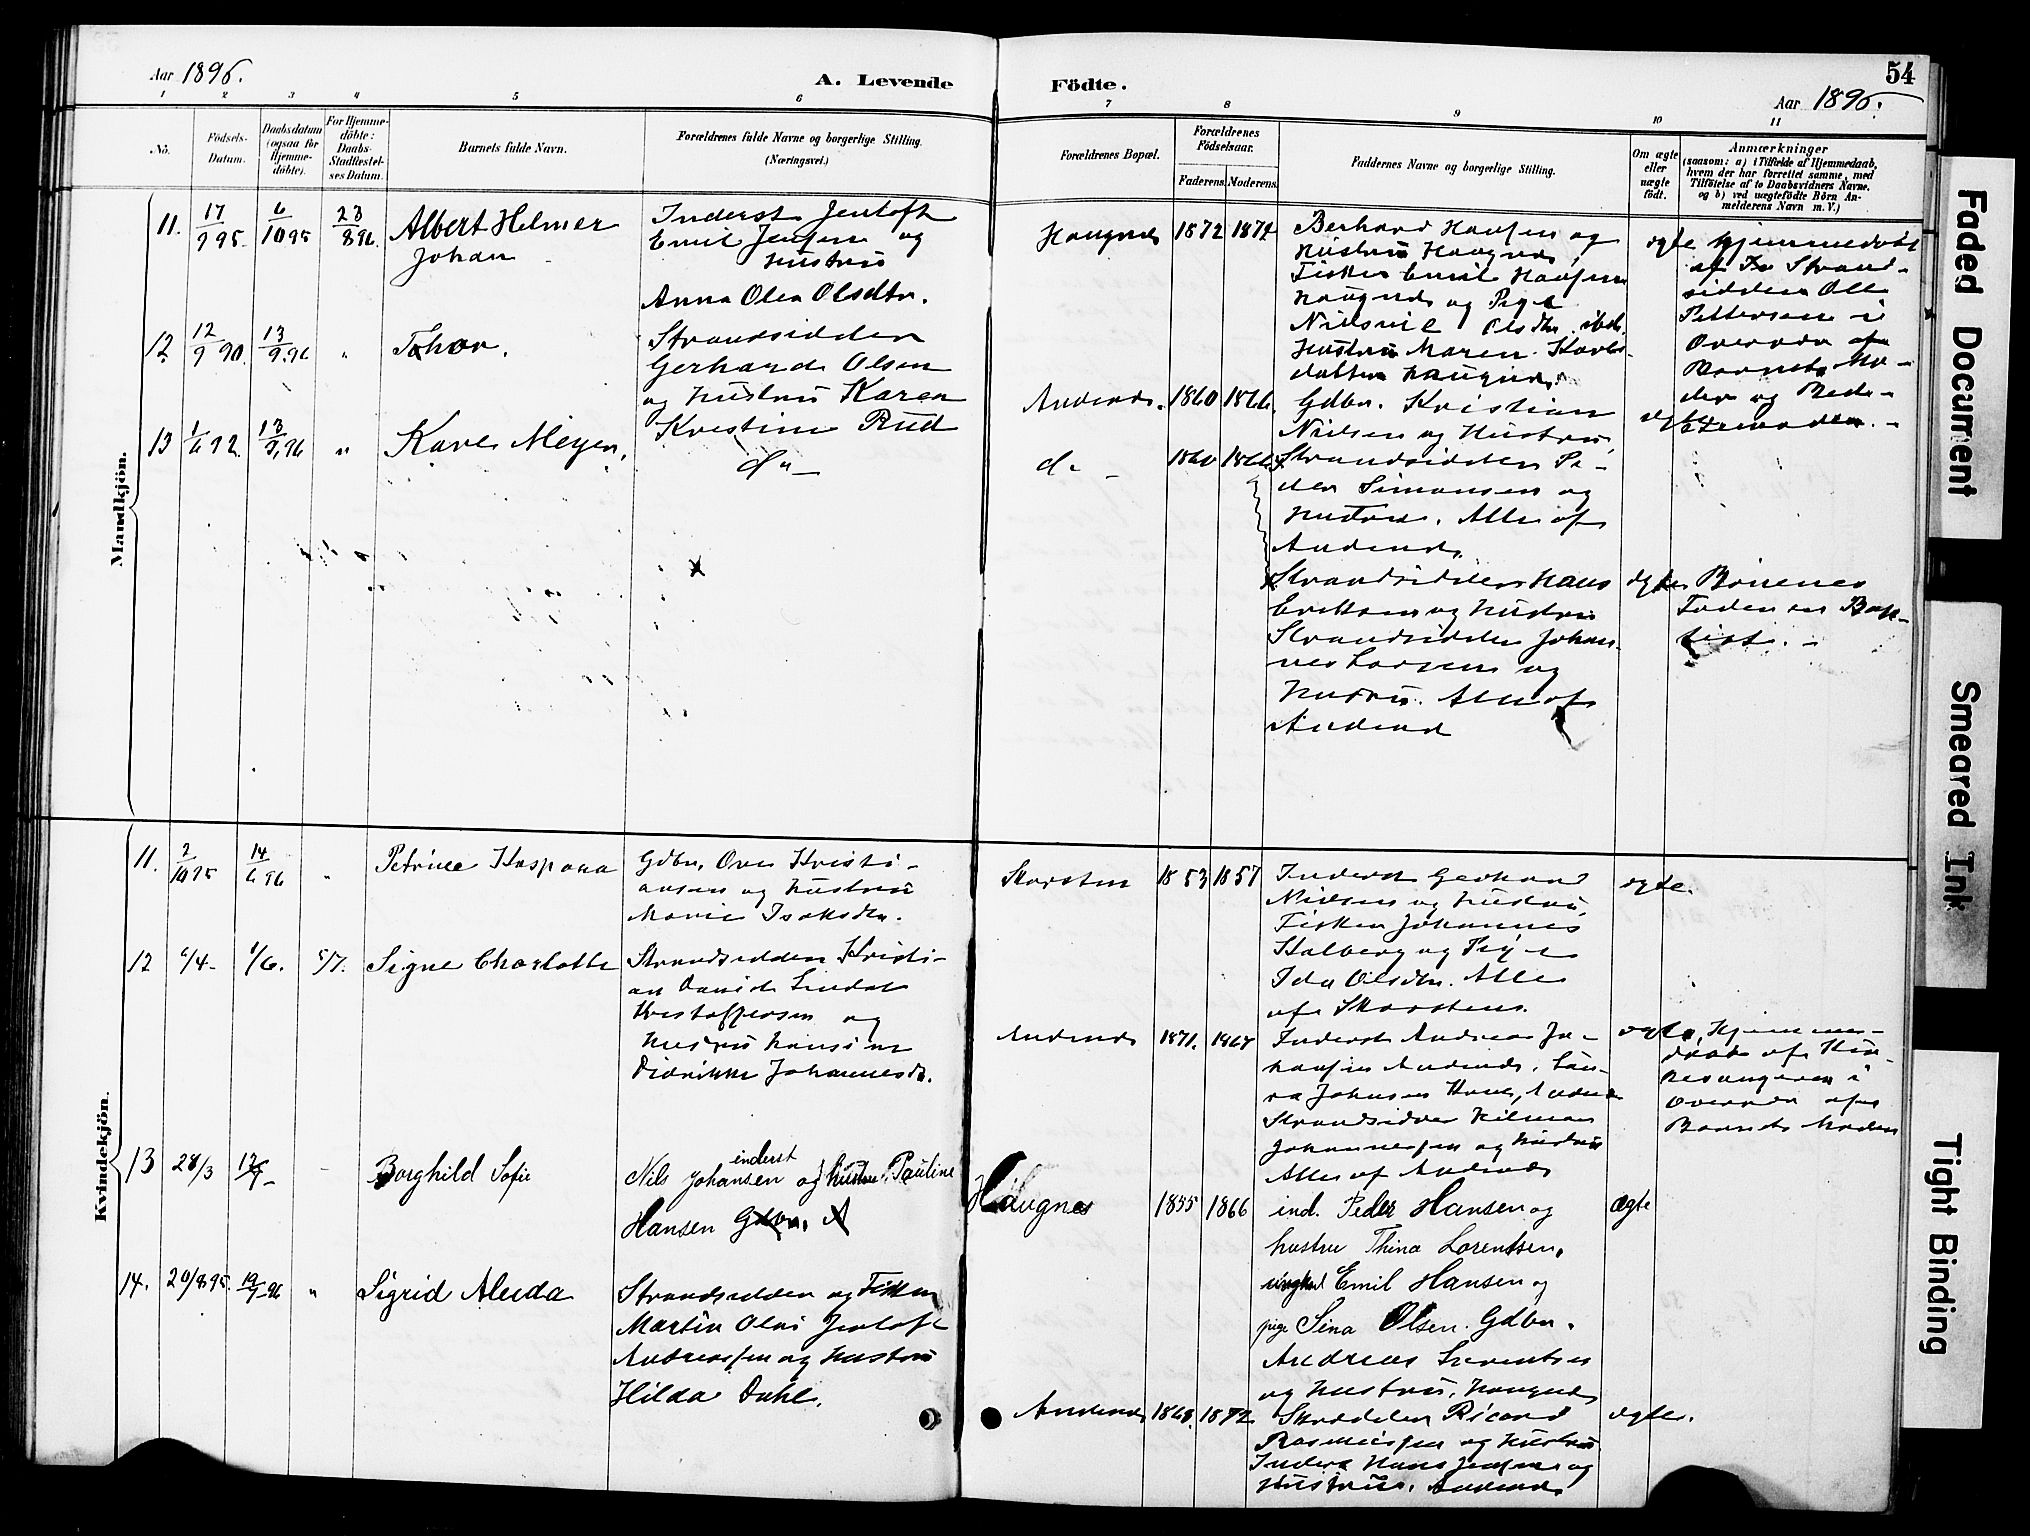 Aar 1896.
A. Levende
Födte.
54
Aar 1896.
1 2 3 4 5 6 7 8 9 10 11
No.
Födsels-
Datum.
Daabsdatum
(ogsaa for
Hjemme-
döbte).
For Hjemme-
döbte:
Daabs-
Stadfæstel-
ses Datum.
Barnets fulde Navn.
Forældrenes fulde Navne og borgerlige Stilling.
(Næringsvei.)
Forældrenes Bopæl.
Forældrenes
Födselsaar.
Faderens. Moderens.
Faddernes Navne og borgerlige Stilling.
Om ægte
eller
uægte
født.
Anmærkninger
(saasom: a) i Tilfælde af Hjemmedaab,
hvem der har forrettet samme, med
Tilföielse af to Daabsvidners Navne.
og b) ved uægtefödte Börn An-
melderens Navn m. V.)
Mandkjön.
11. 17/9 95. 6/10 95 23/8 96. Albert Helmer
Johan
Inderst Jentoft
Emil Jensen og
Hustru
Anna Olea Olsdtr.
Haugnes 1872 1872
Berhard Hansen og
Hustru Haugnes,
Fisker Emil Hansen
Haugnes og Pige
Olsdtr. ibd.
Hustru Maren
datter Haugnes.
ægte Hjemmedøbt
af Strand-
sidder Ole
Pettersen i
Overvær af
Barnets Mo-
der og Bede-
stemoder.
12 12/9 90. 13/9.96 " Thor.
Strandsidder
Gerhard Olsen
og Hustru Karen
Kristine Rud
Andenes. 1860 1866
Gdbr. Kristian
Nielsen og Hustru,
Strandsidder Pe-
der Simonsen og
Hustru. Alle af
Andenes.
ægte
13 1/6 92. 13/9.96 " Kare Meyer.
do
do 1860 1866
Strandsidder Hans
Eriksen og Hustru
Strandsidder Johan-
nes Larsen og
Hustru. Alle af
Andenes
ægte Börnenes
Fader er Bap-
tist. -
Kvindekjön.
11. 2/10 95 14/6 96 " Petrine Kaspara
Gdbr. Ove Kristi-
ansen og Hustru
Marie Isaksdtr.
Skarsten 1853 1857
Inderst Gerhard
Nielsen og Hustru,
Fisker Johannes
Stalberg og Pige
Ida Olsdtr. Alle
af Skarsten.
ægte.
12 6/4- 1/6. 5/7. Signe Charlotte
Strandsidder Kristi-
an David Lindal
Kristoffersen og
Hustru Hansine
Didrikke Johannesdr.
Andenes 1871. 1867
Inderst Andreas Jo-
hansen Andenes, Lau-
ra Johnsen
Strandsidder Hilmar
Johannessen og Hustru
Alle af Andenes
ægte, Hjemme-
døbt af Kir-
kesangeren i
Overvær af
Barnets Moder
13 28/3 Borghild Sofie
Nils Johansen inderst og hustru Pauline
Hansen Gdbr. A
Haugnes 1855 1866
ind. Peder Hansen og
hustru Thina Lorentsen,
ungkarl Emil Hansen og
pige Sina Olsen. Gdbr.
Andreas Lorentsen
og Hustru, Haugnes
Ægte
14. 20/8 95. 19/7 96 " Sigrid Alida
Strandsidder og Fisker
Martin Olai Jentoft
Andreassen og Hustru
Hilda Dahl.
Andenes 1868. 1872
Skrædder Ricard
Rasmussen og Hustru
Inderst Hans Jensen og
Hustru. Andenes
ægte.
Faded Document
Smeared Ink
Tight Binding